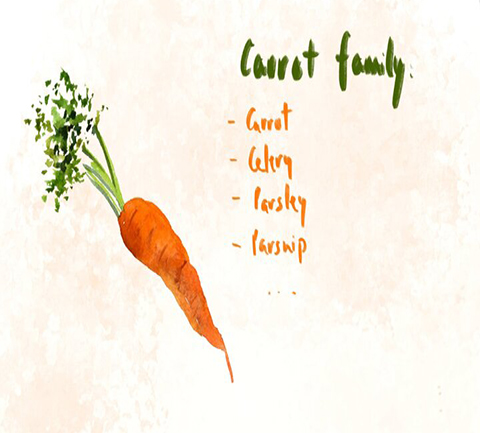 Carrot family:
- Carrot
- Celery
- Parsley
- Parsnip
...